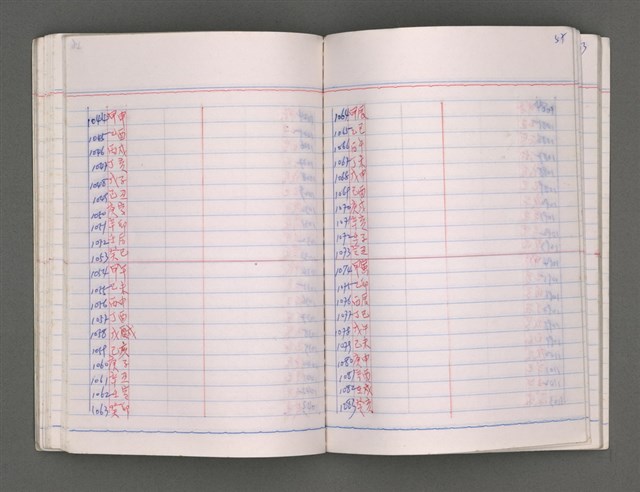 1044甲申
1045乙酉
1046丙戌
1047丁亥
1048戊子
1049己丑
1050庚寅
1051辛卯
1052壬辰
1053癸巳
1054甲午
1055乙未
1056丙申
1057丁酉
1058戊戌
1059己亥
1060庚子
1061辛丑
1062壬寅
1063癸卯
58
1064甲辰
1065乙巳
1066丙午
1067丁未
1068戊申
1069己酉
1070庚戌
1071辛亥
1072壬子
1073癸丑
1074甲寅
1075乙卯
1076丙辰
1077丁巳
1078戊午
1079己未
1080庚申
1081辛酉
1082壬戌
1083癸亥